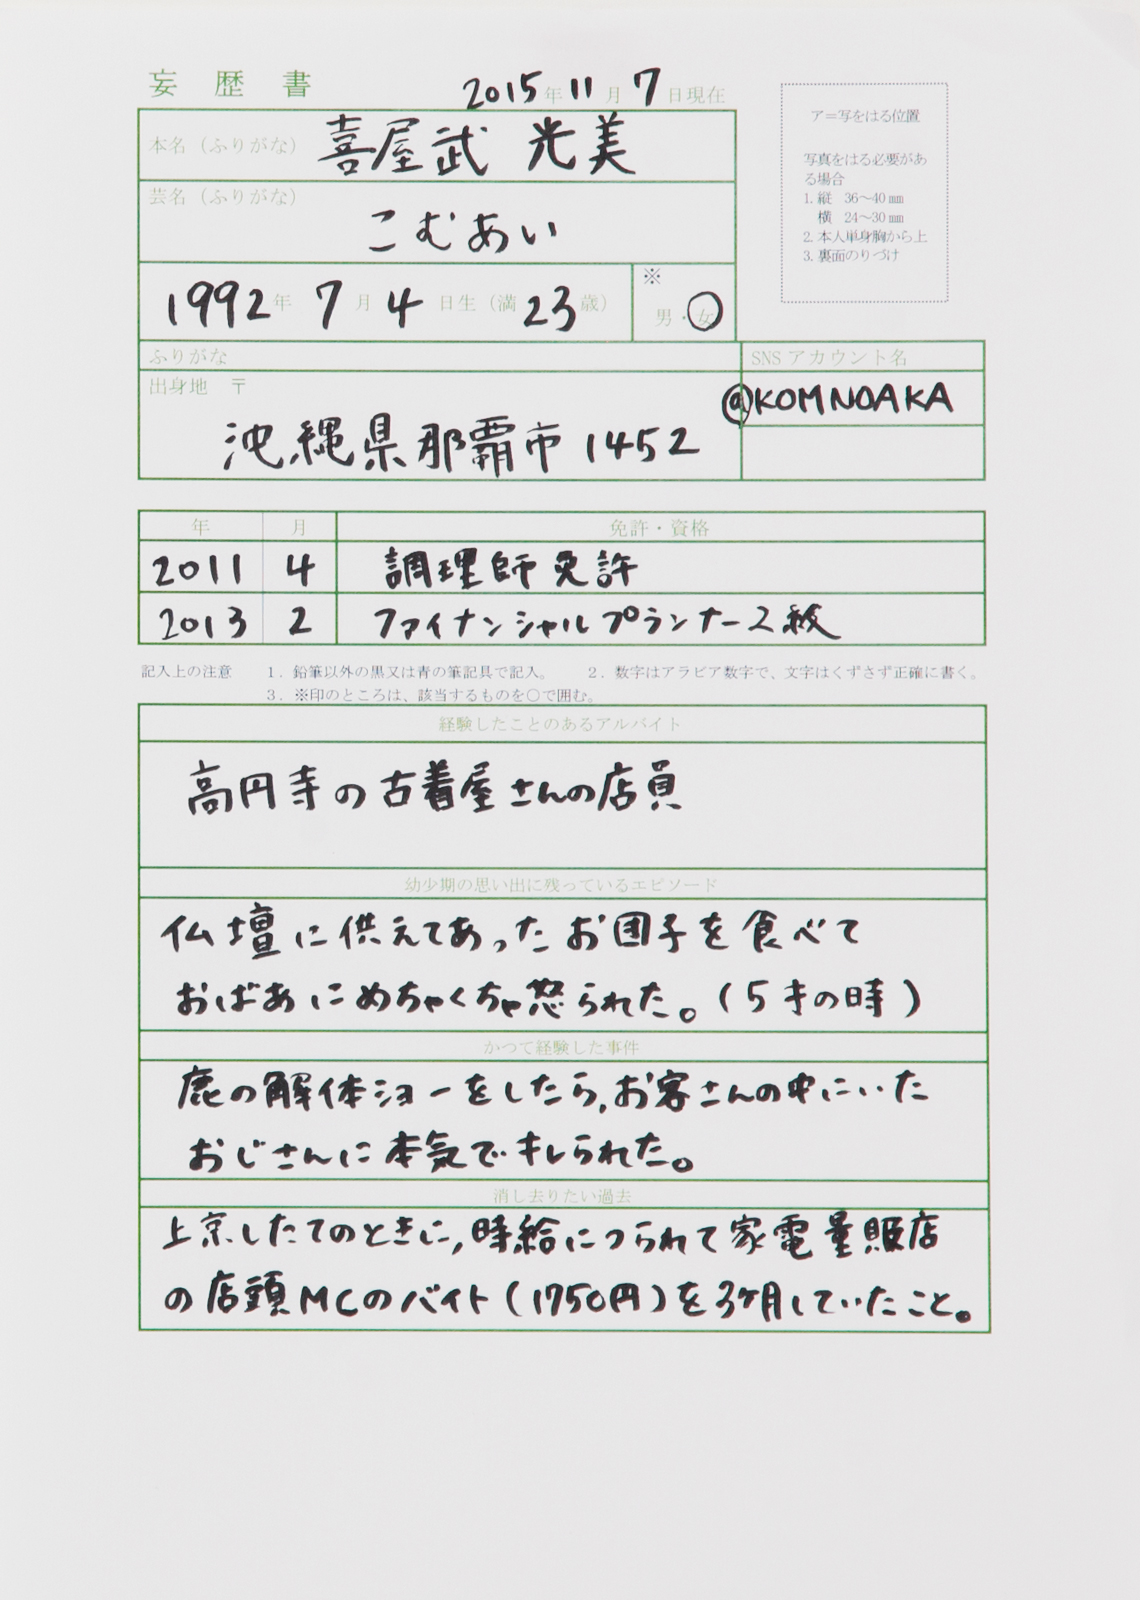 妄歴書
2015年11月7日現在
ア＝写をはる位置
写真をはる必要があ
る場合
1. 縦 36～40㎜
横 24～30㎜
2. 本人単身胸から上
3. 裏面のりづけ
本名（ふりがな） 喜屋武 光美
芸名（ふりがな）
こむあい
1992年 7月 4日生（満23歳） ※ 男・女
ふりがな
SNSアカウント名
出身地 〒
@KOMNOAKA
沖縄県那覇市1452
年 月 免許・資格
2011 4 調理師免許
2013 2 ファイナンシャルプランナー2級
記入上の注意 1．鉛筆以外の黒又は青の筆記具で記入。 2．数字はアラビア数字で、文字はくずさず正確に書く。
3．※印のところは、該当するものを○で囲む。
経験したことのあるアルバイト
高円寺の古着屋さんの店員
幼少期の思い出に残っているエピソード
仏壇に供えてあったお団子を食べて
おばあにめちゃくちゃ怒られた。(5才の時)
かつて経験した事件
鹿の解体ショーをしたら,お客さんの中にいた
おじさんに本気でキレられた。
消し去りたい過去
上京したてのときに,時給につられて家電量販店
の店頭MCのバイト(1750円)を3ヶ月していたこと。